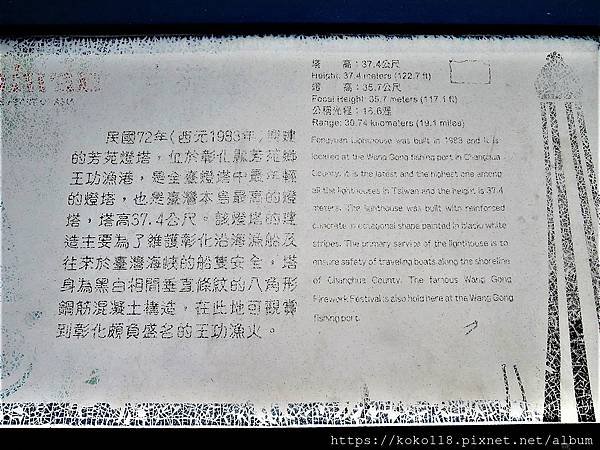 民國72年(西元1983年)興建
的芳苑燈塔，位於彰化縣芳苑鄉
王功漁港，是全臺燈塔中最年輕
的燈塔，也是臺灣本島最高的燈
塔，塔高37.4公尺。該燈塔的建
造主要為了維護彰化沿海漁船及
往來於臺灣海峽的船隻安全，塔
身為黑白相間垂直條紋的八角形
鋼筋混凝土構造，在此地可觀賞
到彰化頗負盛名的王功漁火。
塔　高：37.4公尺
Height: 37.4 meters (122.7 ft)
燈　高：35.7公尺
Focal Height: 35.7 meters (117.1 ft)
公稱光程：16.6浬
Range: 30.74 kilometers (19.1 miles)
Fangyuan Lighthouse was built in 1983 and it is
located at the Wang Gong fishing port in Changhua
County. It is the latest and the highest one among
all the lighthouses in Taiwan and the height is 37.4
meters. The lighthouse was built with reinforced
concrete in octagonal shape painted in black/white
stripes. The primary service of the lighthouse is to
ensure safety of traveling boats along the shoreline
of Changhua County. The famous Wang Gong
Firework Festival is also held here at the Wang Gong
fishing port.
https://koko118.pixnet.net/album